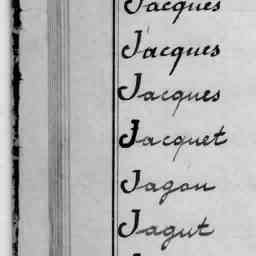 Jacques
Jacques
Jacques
Jacquet
Jagou
Jagut